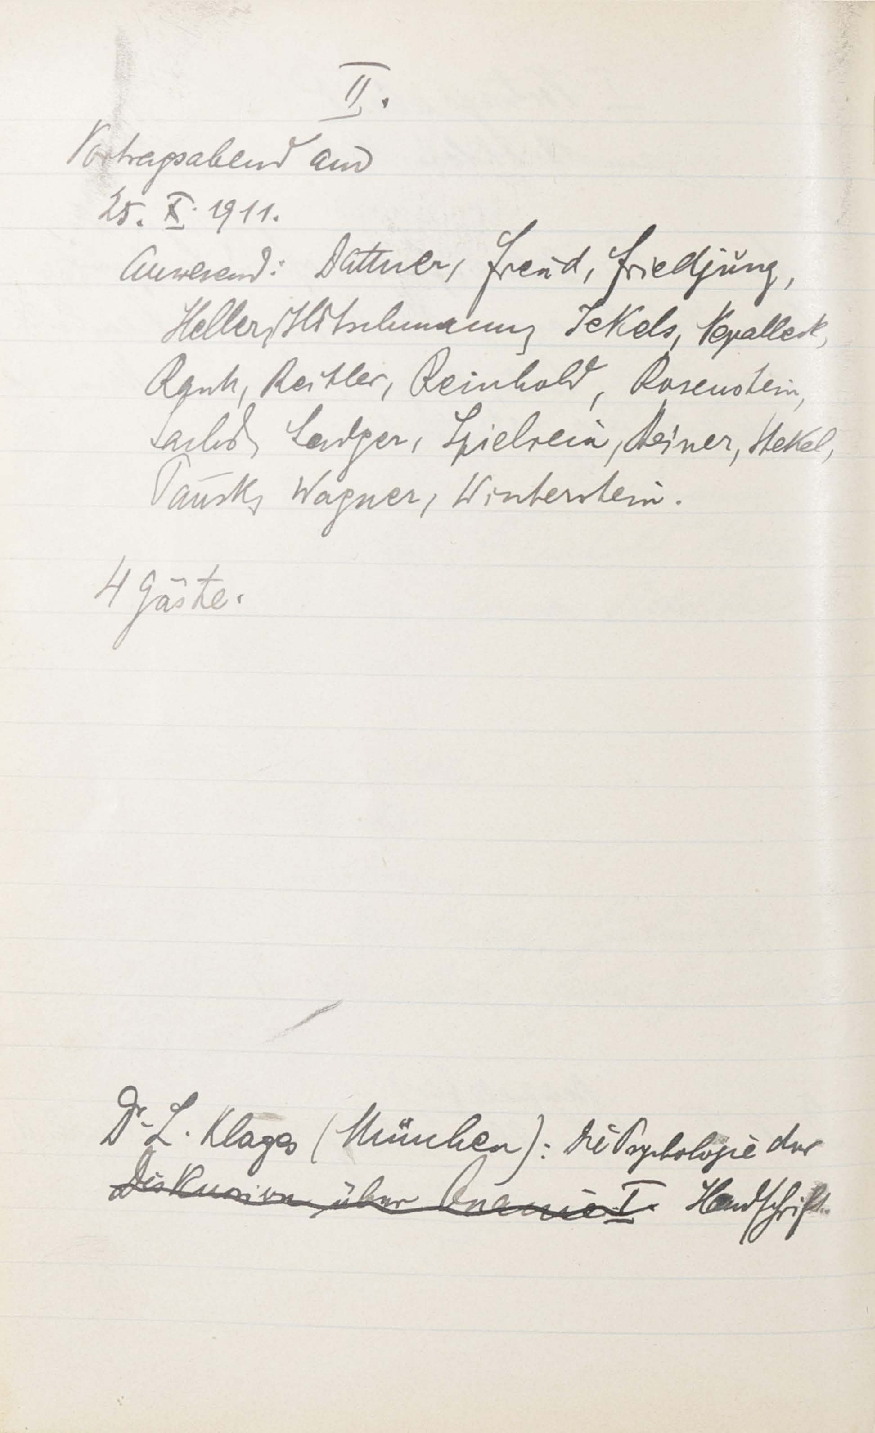 II.
Vortragsabend am
25. X. 1911.
Anwesend: Dattner, Freud, Friedjung,
Heller, Hitschmann, Jekels, Nepalleck,
Rank, Reitler, Reinhold, Rosenstein,
Sachs, Sadger, Spielrein, Steiner, Stekel,
Tausk, Wagner, Winterstein.
4 Gäste.
Dr. L. Klages (München): Die Psychologie der
Diskussion über Onanie I. Handschrift.